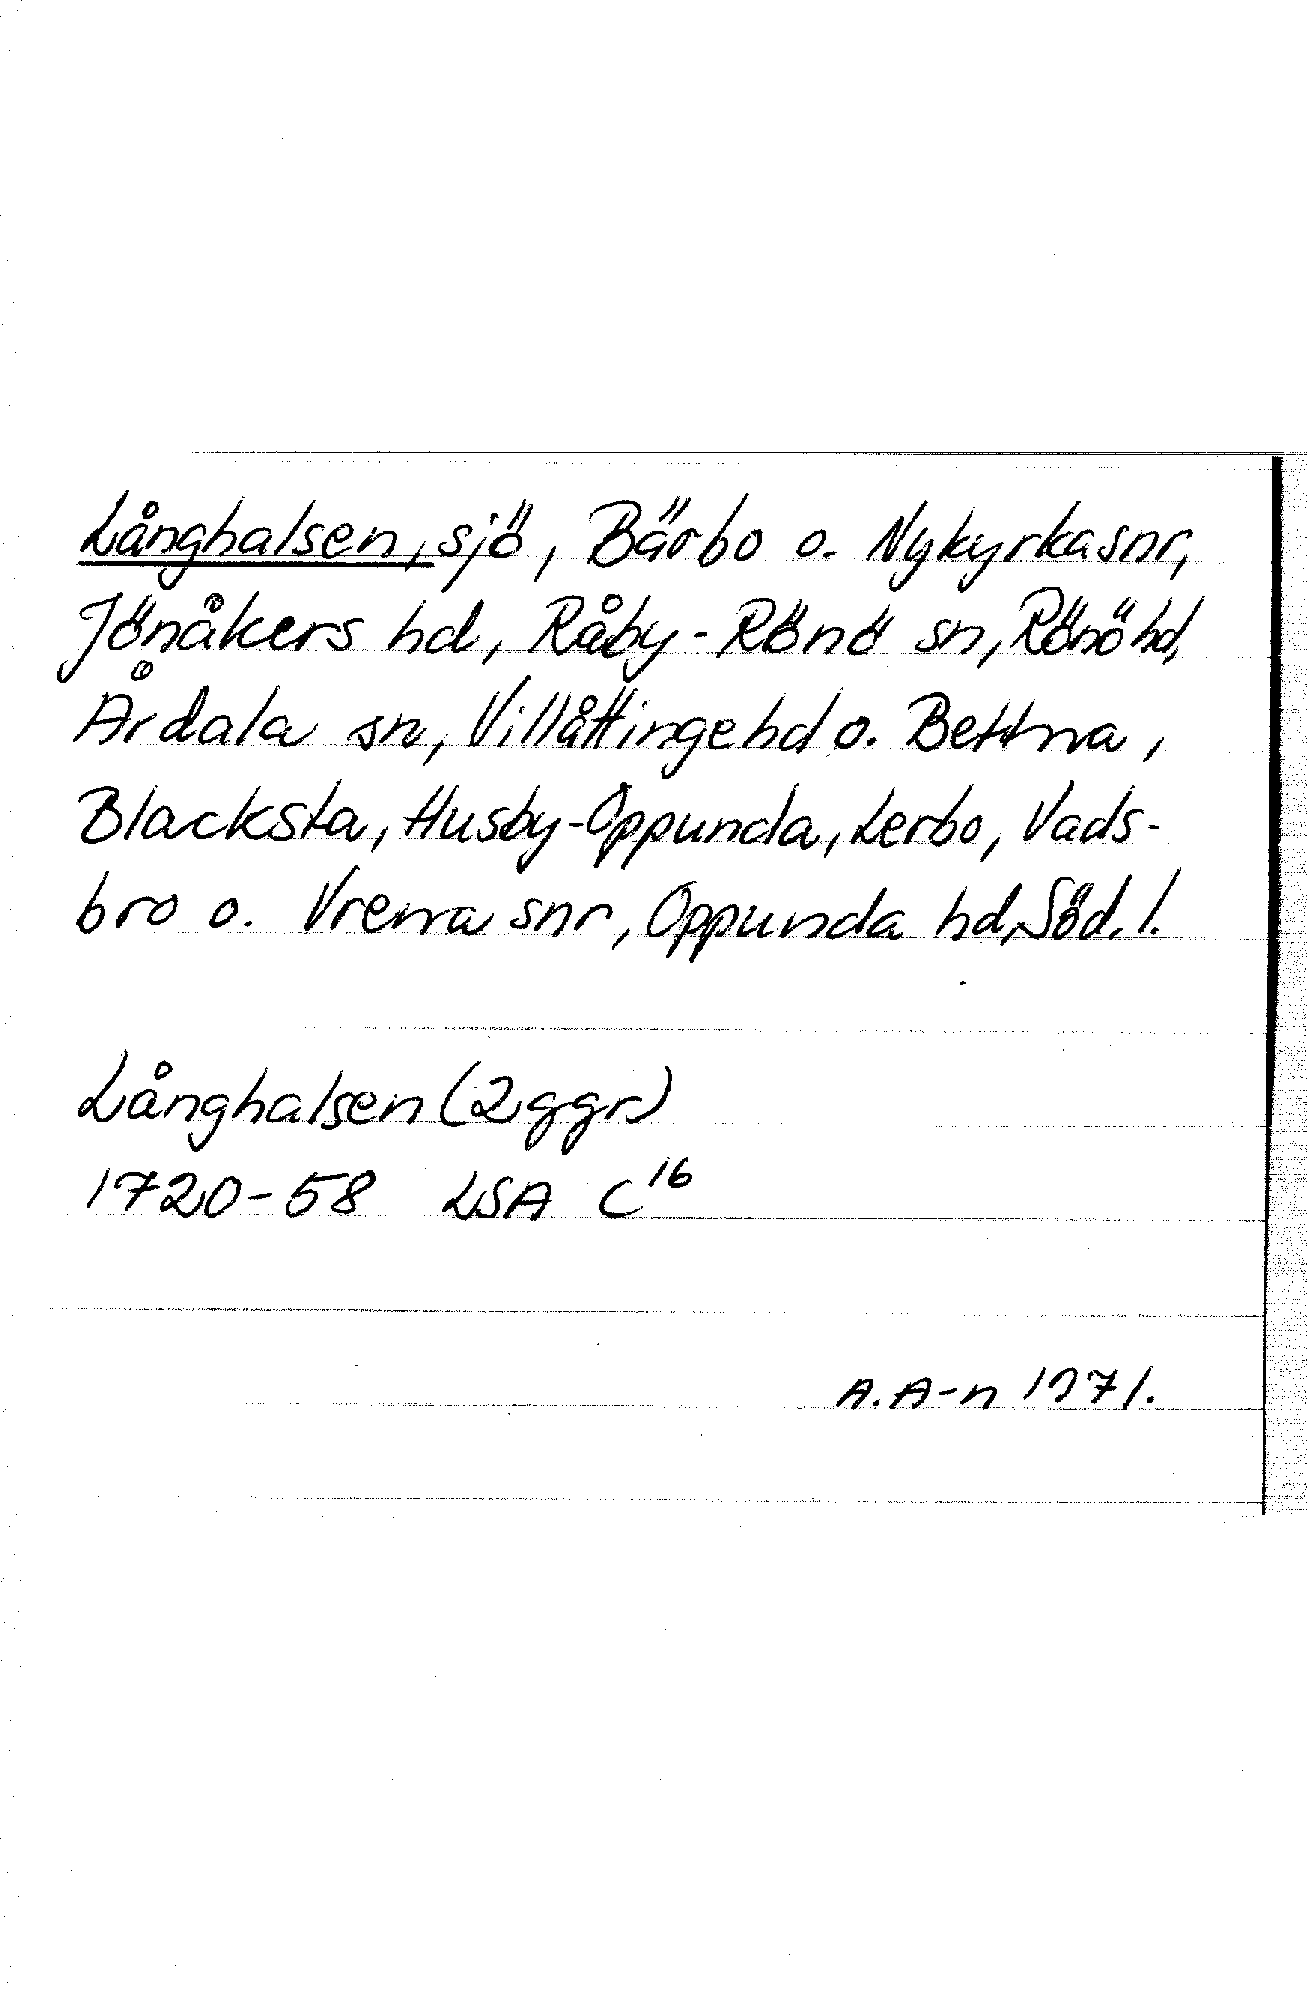 Långhalsen, sjö, Bärbo o. Nykyrka snr,
Jönåkers hd, Råby-Rönö sn, Rönö hd,
Årdala sn, Villåttinge hd o. Bettna,
Blacksta, Husby-Oppunda, Lerbo, Vads-
bro o. Vrena snr, Oppunda hd, Söd. l.
Långhalsen (2 ggr)
1720-58 LSA C 16
A. A-n 1971.